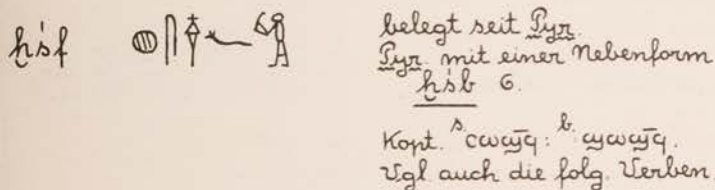 ḫśf 𓐍𓋴𓍖𓆑𓀜 belegt seit Pyr.
Pyr. mit einer Nebenform
ḫśb 6.
Kopt. ˢ ⲥⲱϣϥ̄ : ᵇ ϣⲱϣϥ̄.
Vgl. auch die folg. Verben